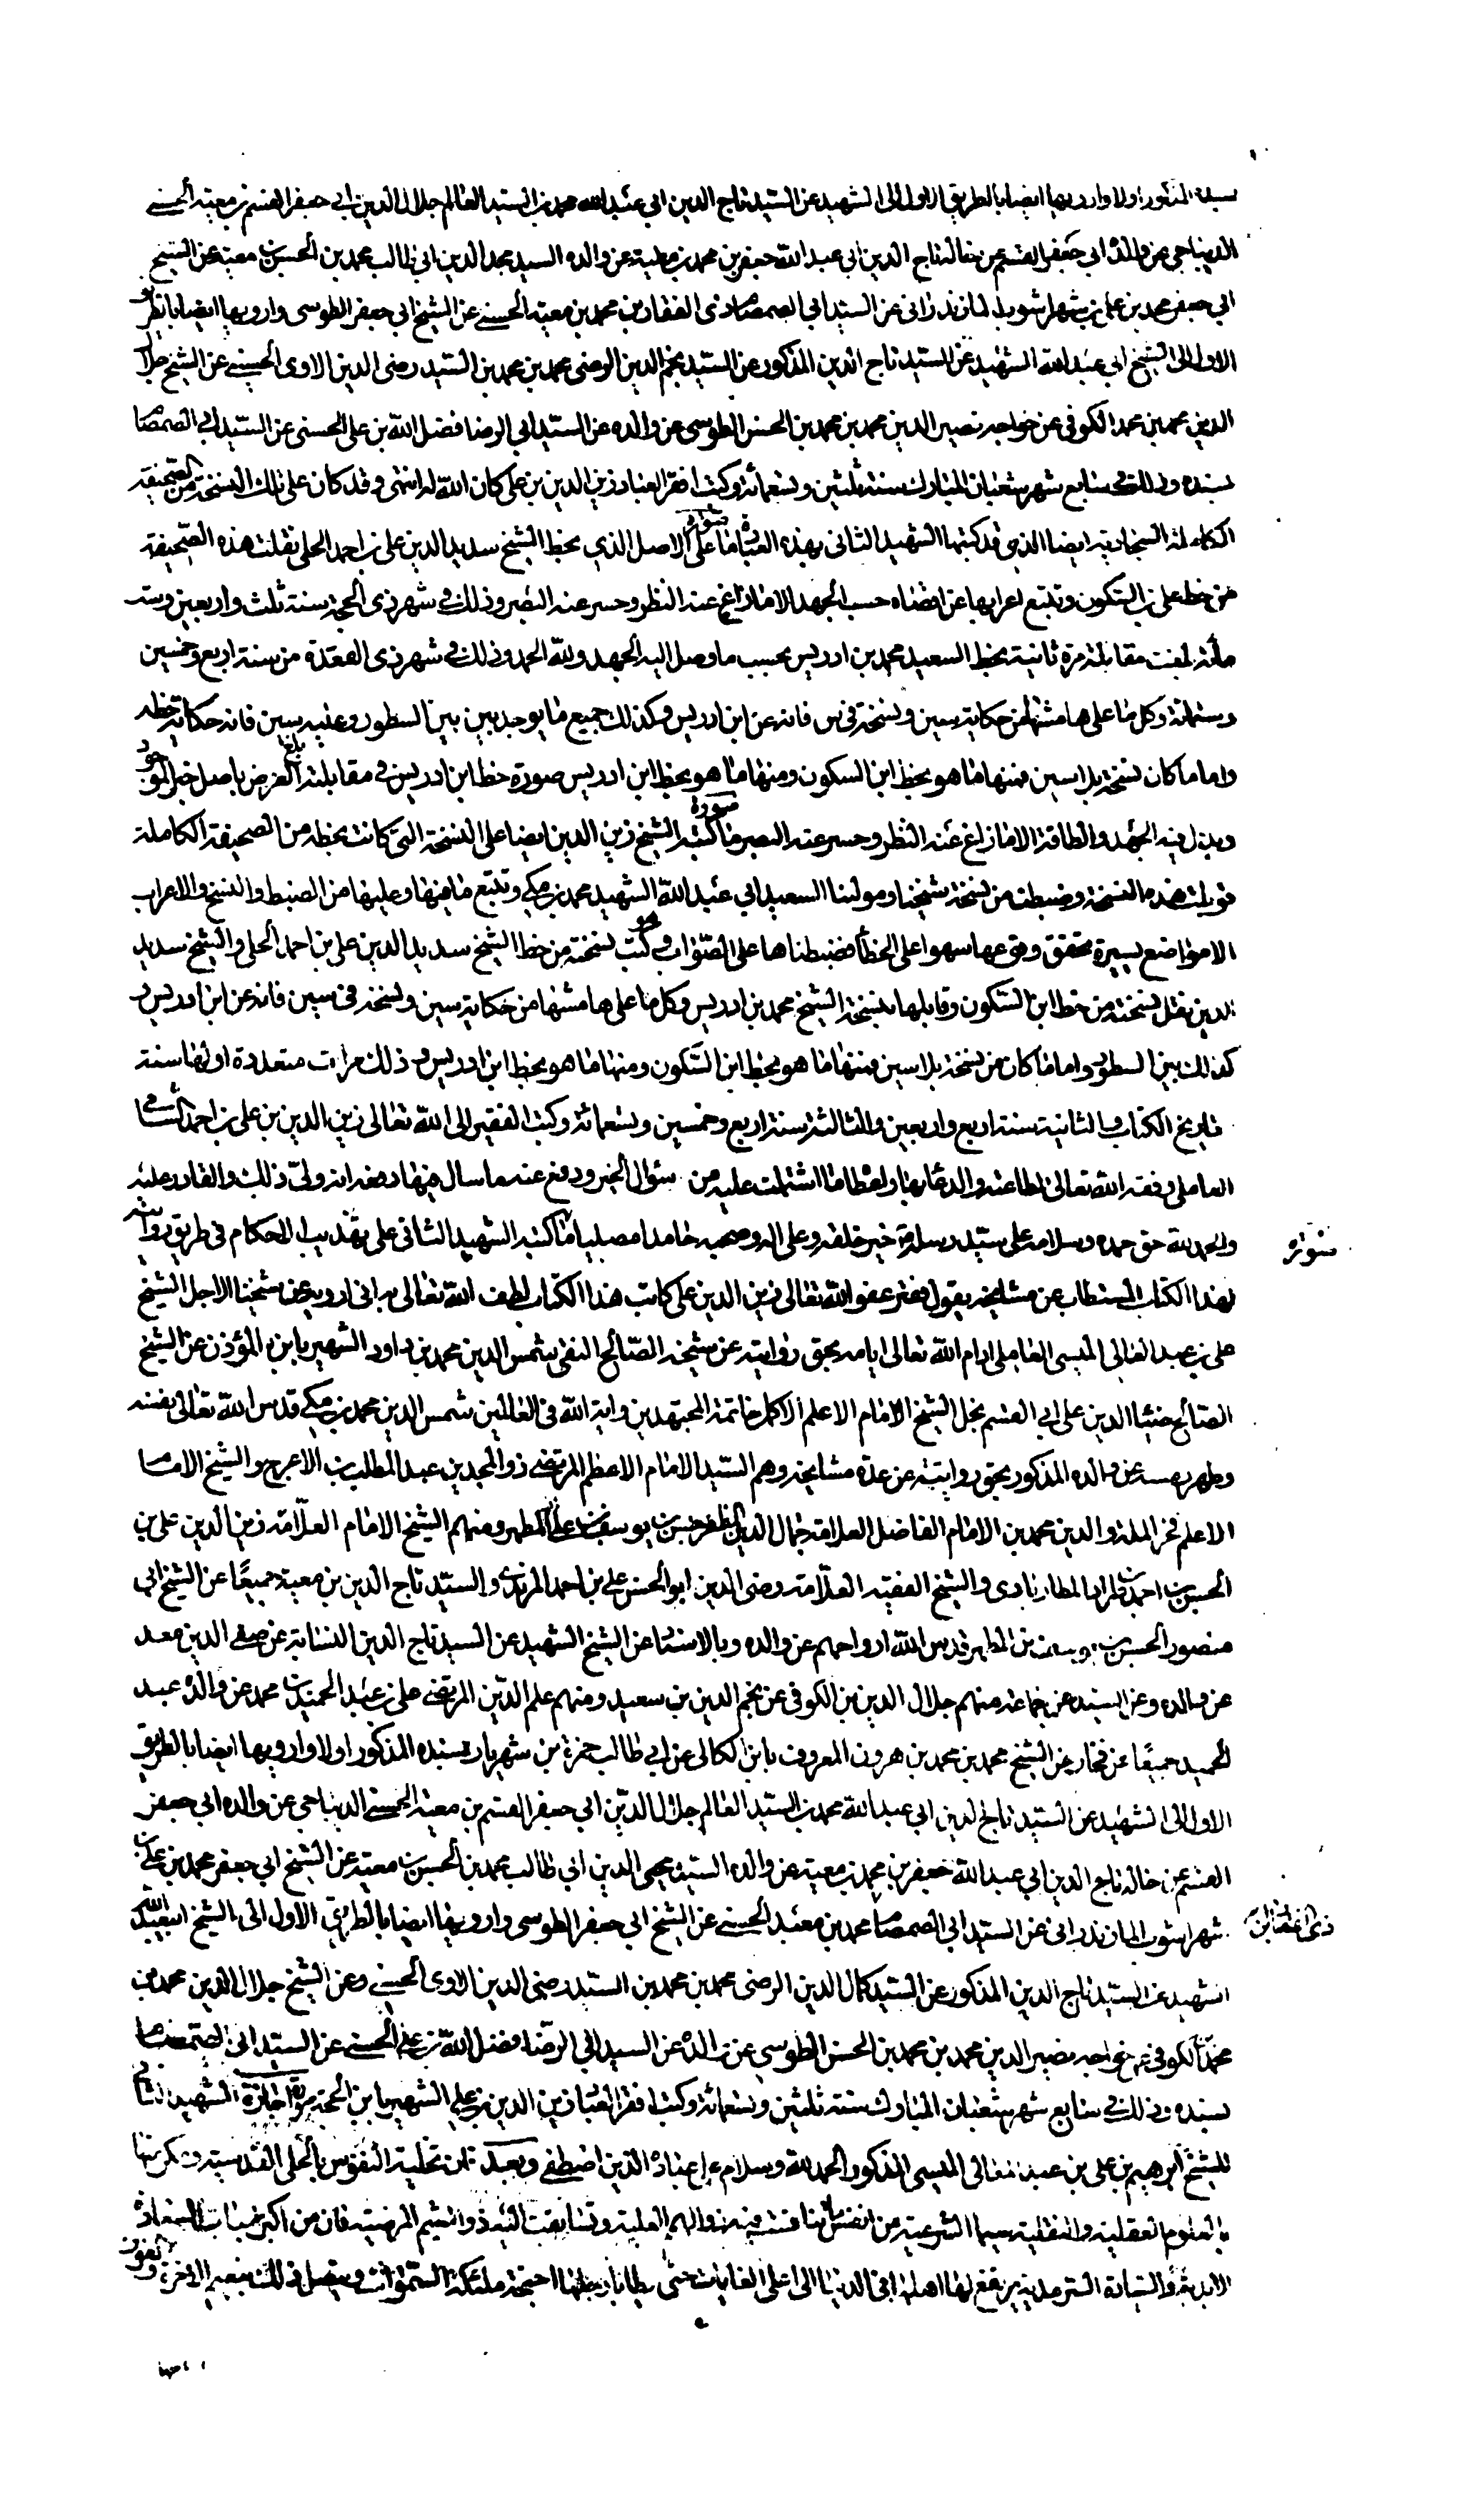 بسنده المذكور اولا وارويها ايضا بالطريق الاول الى الشهيد عن السيد تاج الدين ابي عبد الله محمد بن السيد العالم جلال الدين ابي جعفر القسم بن معية الحسني
الديباجي عن والده ابي جعفر القسم عن خاله تاج الدين ابي عبد الله جعفر بن محمد بن معية عن والده السيد مجد الدين ابي طالب محمد بن الحسن بن معية عن الشيخ
ابي جعفر محمد بن علي بن شهراشوب المازندراني عن السيد ابي الصمصام ذي الفقار بن محمد بن معبد الحسني عن الشيخ ابي جعفر الطوسي وارويها ايضا بالطريق
الاول الى الشيخ ابي عبد الله الشهيد عن السيد تاج الدين المذكور عن السيد نجم الدين الرضي محمد بن محمد بن السيد رضي الدين الاوي الحسيني عن الشيخ جلال
الدين محمد بن محمد الكوفي عن خواجه نصير الدين محمد بن محمد بن الحسن الطوسي عن والده عن السيد ابي الرضا فضل الله بن علي الحسني عن السيد ابي الصمصام
بسنده وذلك في سابع شهر شعبان المبارك سنة ثلثين وتسعمائة وكتب افقر العباد زين الدين بن علي كان الله له انتهى وقد كان على تلك النسخة من الصحيفة
الكاملة السجادية ايضا الذي قد كتبها الشهيد الثاني بهذه العبارة صورة ما على الاصل الذي بخط الشيخ سديد الدين علي بن احمد الحلي نقلت هذه الصحيفة
من خط علي بن السكون وتتبع اعرابها عن اقصاه حسب الجهد الا ما زاغ عنه النظر وحسر عنه البصر وذلك في شهر ذي الحجة سنة ثلث واربعين وست
مائة بلغت مقابلة مرة ثانية بخط السعيد محمد بن ادريس بحسب ما وصل اليه الجهد ولله الحمد وذلك في شهر ذي القعدة من سنة اربع وخمسين
وستمائة وكل ما على هامشها من حكاية سين ونسخة في س فانه عن ابن ادريس وكذلك جميع ما يوجد بين بين السطور وعليه سين فانه حكاية خطه
واما ما كان نسخة بلا سين فمنها ما هو بخط ابن السكون ومنها ما هو بخط ابن ادريس صورة خط ابن ادريس في مقابلته بلغ العرض باصل خير الموجود
وبذل فيه الجهد والطاقة الا ما زاغ عنه النظر وحسر عنه البصر صورة ما كتبه الشيخ زين الدين ايضا على النسخة التي كانت بخطه من الصحيفة الكاملة
قوبلت هذه النسخة وضبطت من نسخة شيخنا ومولنا السعيد ابي عبد الله الشهيد محمد بن مكي وتتبع ما فيها وعليها من الضبط والنسخ والاعراب
الا مواضع يسيرة تحقق وقوعها سهوا على الخطأ فضبطناها على الصواب وهو كتب نسخته من خط الشيخ سديد الدين علي بن احمد الحلي والشيخ سديد
الدين نقل نسخته من خط ابن السكون وقابلها بنسخة الشيخ محمد بن ادريس وكل ما على هامشها من حكاية سين ونسخة في سين فانه عن ابن ادريس و
كذلك بين السطور واما ما كان من نسخة بلا سين فمنها ما هو بخط ابن السكون ومنها ما هو بخط ابن ادريس وذلك مرات متعددة اولها سنة
تاريخ الكتاب والثانية سنة اربع واربعين والثالثة سنة اربع وخمسين وتسعمائة وكتب الفقير الى الله تعالى زين الدين بن علي بن احمد الشامي
العاملي وفقه الله تعالى لطاعته والدعاء بها واعطاه ما اشتملت عليه من سؤال الخير ودفع عنه ما سال فيها دفعه انه ولي ذلك والقادر عليه
والحمد لله حق حمده وسلامه على سيد رسله من خير خلقه وعلى اله وصحبه حامدا مصليا ما كتبه الشهيد الثاني على تهذيب الاحكام في طريق روايته
صورة
لهذا الكتاب المستطاب عن مشايخه يقول فقير عفو الله تعالى زين الدين علي كاتب هذا الكتاب لطف الله تعالى به اني ارويه عن شيخنا الاجل الشيخ
علي بن عبد العالي الميسي العاملي ادام الله تعالى ايامه بحق روايته عن شيخه الصالح التقي شمس الدين محمد بن داود الشهير بابن المؤذن عن الشيخ
الصالح ضياء الدين علي ابي القسم نجل الشيخ الامام الاعلم الاكمل خاتمة المجتهدين واية الله في العالمين شمس الدين محمد بن مكي قدس الله تعالى نفسه
وطهر رمسه عن والده المذكور بحق روايته عن عدة مشايخه وهم السيد الامام الاعظم المرتضى ذو المجدين عبد المطلب بن الاعرج والشيخ الامام
الاعلم فخر الملة والدين محمد بن الامام الفاضل العلامة جمال الدين المظفر حسن بن يوسف بن علي المطهر ومنهم الشيخ الامام العلامة زين الدين علي بن
الحسن بن احمد بن طراد المطارابادي والشيخ الفقيه العلامة رضي الدين ابو الحسن علي بن احمد المزيدي والسيد تاج الدين بن معية جميعا عن الشيخ ابي
منصور الحسن بن يوسف بن المطهر قدس الله ارواحهم عن والده وبالاسناد عن الشيخ الشهيد عن السيد تاج الدين النسابة عن صفي الدين معد
عن والده وعن السيد عن جماعة منهم جلال الدين بن الكوفي عن نجم الدين بن سعيد ومنهم علم الدين المرتضى علي بن عبد الحميد بن محمد عن والده عبد
الحميد جميعا عن فخار عن الشيخ محمد بن محمد بن هرون المعروف بابن الكالي عن ابي طالب حمزة بن شهريار بسنده المذكور اولا وارويها ايضا بالطريق
الاول الى الشهيد عن السيد تاج الدين ابي عبد الله محمد بن السيد العالم جلال الدين ابي جعفر القسم بن معية الحسني الديباجي عن والده ابي جعفر
القسم عن خاله تاج الدين ابي عبد الله جعفر بن محمد بن معية عن والده السيد محيي الدين ابي طالب محمد بن الحسن بن معية عن الشيخ ابي جعفر محمد بن علي بن
شهراشوب المازندراني عن السيد ابي الصمصام محمد بن معبد الحسني عن الشيخ ابي جعفر الطوسي وارويها ايضا بالطريق الاول الى الشيخ ابي عبد الله
ذي الفقار بن
الشهيد عن السيد تاج الدين المذكور عن السيد كمال الدين الرضي محمد بن محمد بن السيد رضي الدين الاوي الحسني وعن الشيخ جلال الدين محمد بن
محمد الكوفي عن خواجه نصير الدين محمد بن محمد بن الحسن الطوسي عن والده عن السيد ابي الرضا فضل الله بن علي الحسني عن السيد ابي الصمصام
بسنده وذلك في سابع شهر شعبان المبارك سنة ثلثين وتسعمائة وكتب افقر العباد زين الدين بن علي الشهير بابن الحجة صورة اجازة الشهيد الثاني
للشيخ ابرهيم بن علي بن عبد العالي الميسي المذكور الحمد لله وسلام على عباده الذين اصطفى وبعد فان تحلية النفوس بالحلى القدسية وتكريمها
بالعلوم العقلية والنقلية سيما الشرعية من انفس ما تنافست فيه ذوو الهمم العلية وتسابقت اليه ذوو الشيم المرضية فان من اكبر السعادة
الابدية والسيادة السرمدية يرتفع بها اهلها في الدنيا الى اعلى الغايات حتى يطأ بارجلها اجنحة ملئكة السموات ويتصل ذلك بنعيم الاخرة والفوز